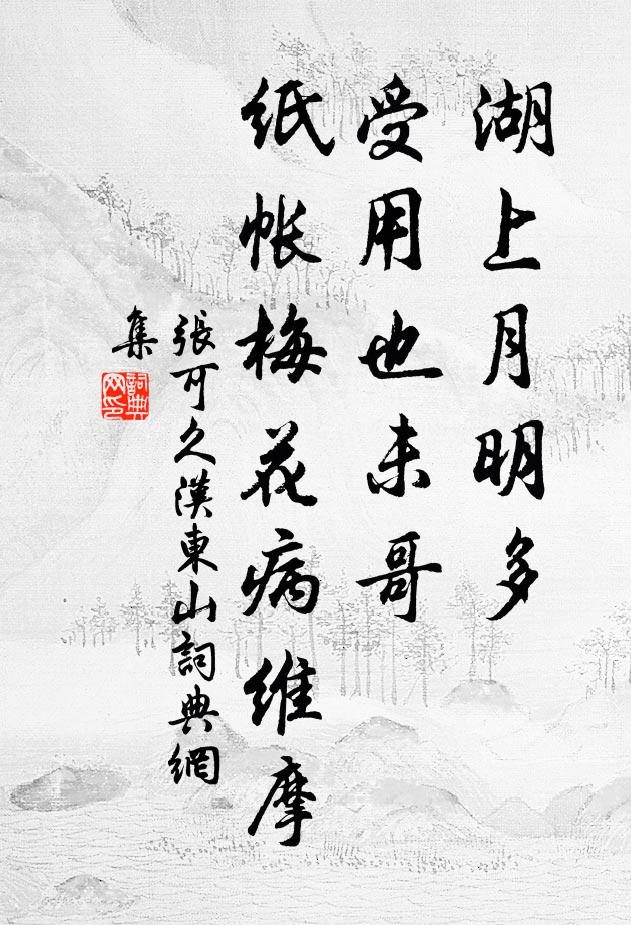 湖上月明多
受用也未哥
紙帳梅花病維摩
張可久漢東山詞典網
集
詞典網印